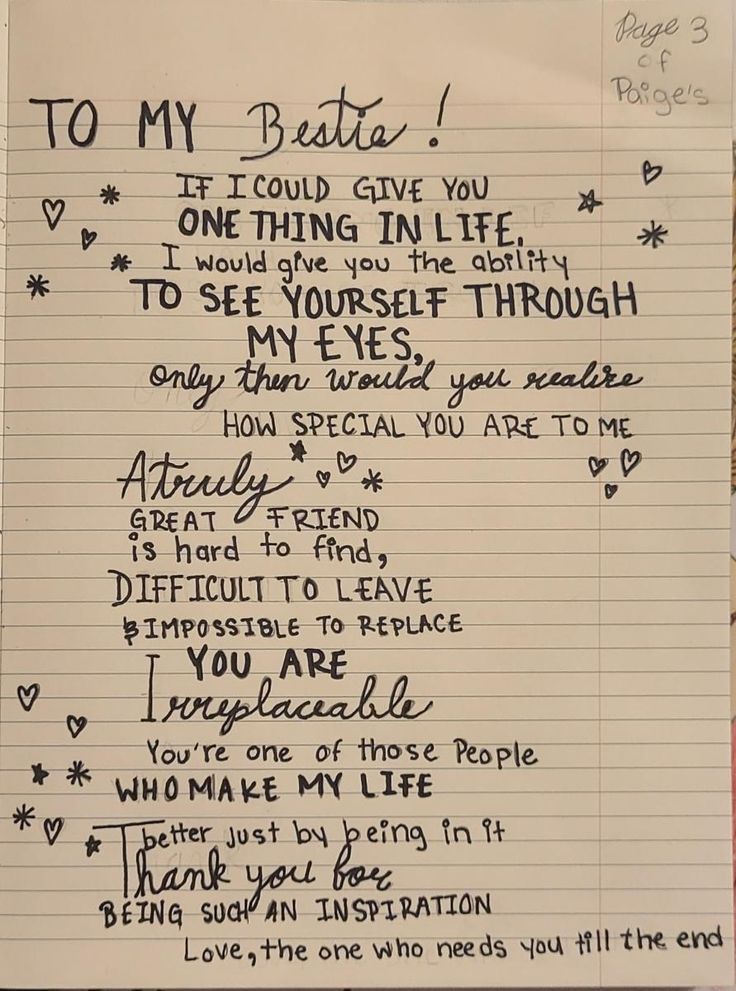 Page 3
of
Paige's
TO MY Bestie!
IF I COULD GIVE YOU
ONE THING IN LIFE,
I would give you the ability
TO SEE YOURSELF THROUGH
MY EYES,
only then would you realize
HOW SPECIAL YOU ARE TO ME
A truly
GREAT FRIEND
is hard to find,
DIFFICULT TO LEAVE
& IMPOSSIBLE TO REPLACE
YOU ARE
Irreplaceable
You're one of those People
WHO MAKE MY LIFE
better just by being in it
Thank you for
BEING SUCH AN INSPIRATION
Love, the one who needs you till the end